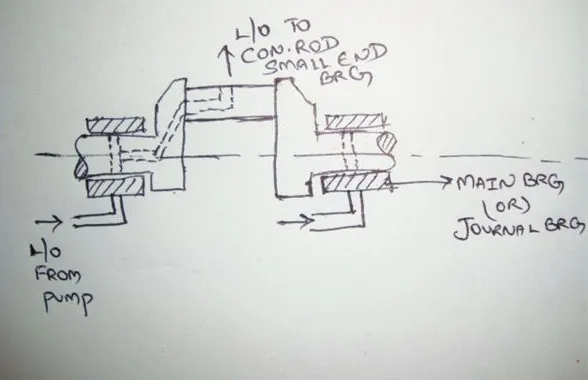 L/O TO
CON.ROD
SMALL END
BRG
MAIN BRG
(OR)
JOURNAL BRG
L/O
FROM
PUMP